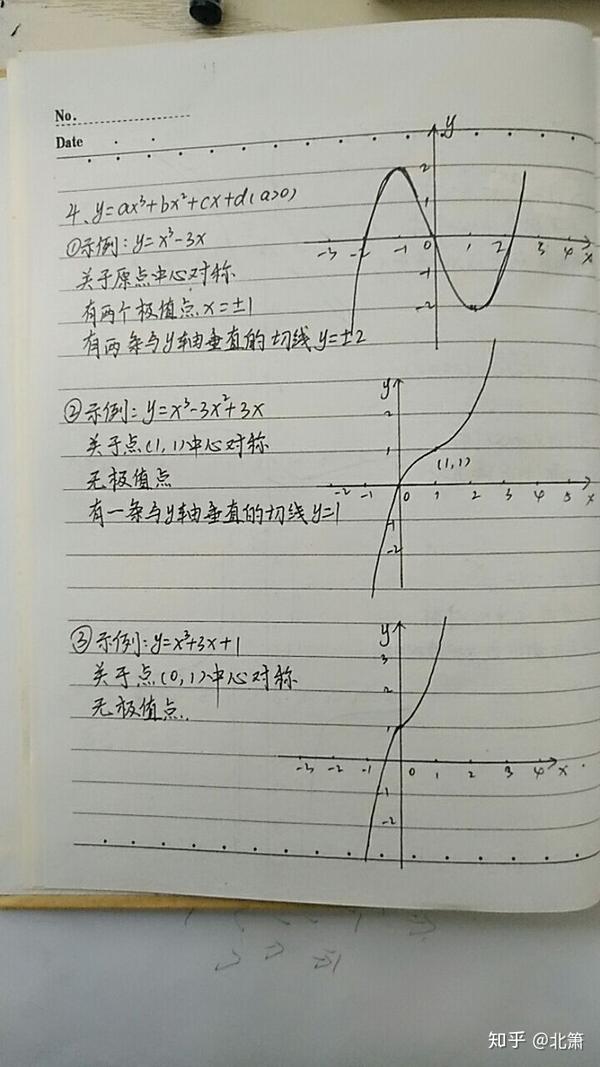 No.
Date
4、y=ax³+bx²+cx+d(a>0)
①示例:y=x³-3x
关于原点中心对称
有两个极值点x=±1
有两条与y轴垂直的切线y=±2
y
2
1
-3 -2 -1 0 1 2 3 4 x
-1
-2
②示例:y=x³-3x²+3x
关于点(1,1)中心对称
无极值点
有一条与y轴垂直的切线y=1
y
2
1
(1,1)
-2 -1 0 1 2 3 4 5 x
-1
-2
③示例:y=x³+3x+1
关于点(0,1)中心对称
无极值点.
y
3
2
1
-3 -2 -1 0 1 2 3 4 x
-1
-2
知乎 @北箫